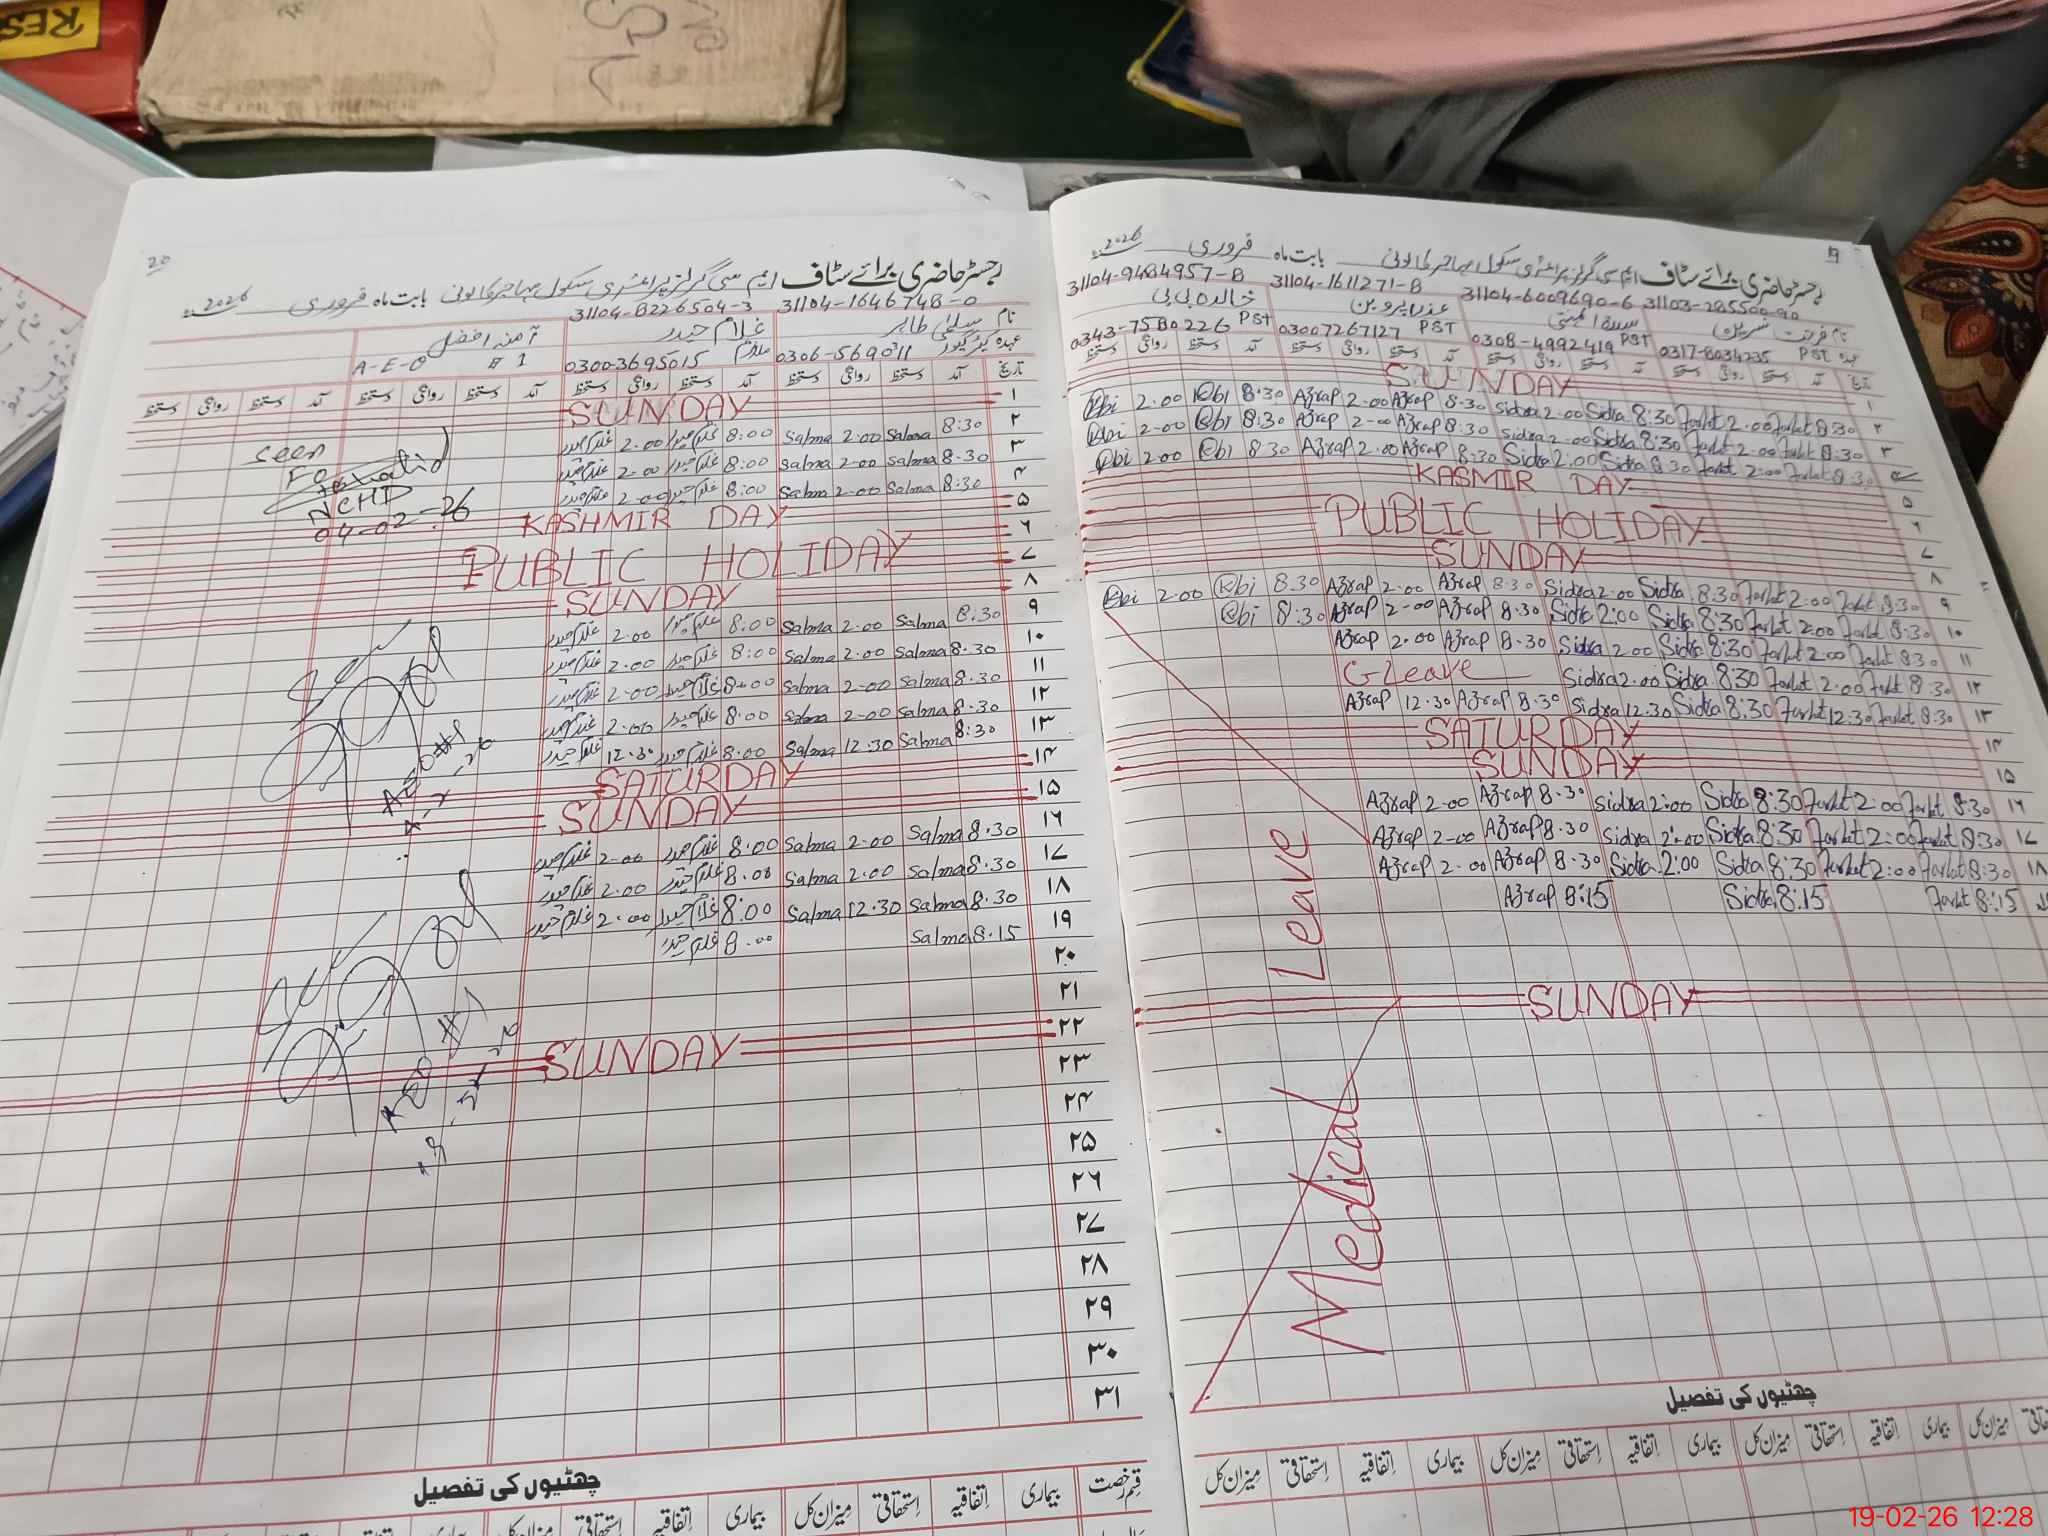 RES
20
رجسٹر حاضری برائے سٹاف ایم سی گرلز پرائمری سکول مہاجر کالونی بابت ماہ فروری 2026
31104-8226504-3 31104-1646748-0
نام سلمیٰ طاہر غلام حیدر آمنہ افضل
عہدہ کیئر گیور 0306-5690311 ملازم 03003695015 A-E-O # 1
تاریخ آمد دستخط روانگی دستخط آمد دستخط روانگی دستخط آمد دستخط روانگی دستخط آمد دستخط روانگی دستخط
۱ SUNDAY
۲ 8:30 Salma 2.00 Salma 8:00 غلام حیدر 2.00 غلام حیدر
۳ 8.30 Salma 2.00 Salma 8:00 غلام حیدر 2.00 غلام حیدر
۴ 8.30 Salma 2.00 Salma 8:00 غلام حیدر 2.00 غلام حیدر
seen
NCHD
04-02-26
۵ KASHMIR DAY
۶
۷ PUBLIC HOLIDAY
۸ SUNDAY
۹ 8.30 Salma 2.00 Salma 8:00 غلام حیدر 2.00 غلام حیدر
۱۰ 8.30 Salma 2.00 Salma 8:00 غلام حیدر 2.00 غلام حیدر
۱۱ 8.30 Salma 2.00 Salma 8:00 غلام حیدر 2.00 غلام حیدر
۱۲ 8.30 Salma 2.00 Salma 8:00 غلام حیدر 2.00 غلام حیدر
۱۳ 8:30 Salma 12.30 Salma 8:00 غلام حیدر 12.30 غلام حیدر
AEO#1
۱۴ SATURDAY
۱۵ SUNDAY
۱۶ 8.30 Salma 2.00 Salma 8:00 غلام حیدر 2.00 غلام حیدر
۱۷ 8.30 Salma 2.00 Salma 8.00 غلام حیدر 2.00 غلام حیدر
۱۸ 8.30 Salma 12.30 Salma 8:00 غلام حیدر 2.00 غلام حیدر
۱۹ 8.15 Salma 8.00 غلام حیدر
۲۰
۲۱
۲۲ SUNDAY
AEO #1
۲۳
۲۴
۲۵
۲۶
۲۷
۲۸
۲۹
۳۰
۳۱
چھٹیوں کی تفصیل
قسم رخصت بیماری اتفاقیہ استحقاقی میزان کل بیماری اتفاقیہ استحقاقی میزان کل بیماری اتفاقیہ
رجسٹر حاضری برائے سٹاف ایم سی گرلز پرائمری سکول مہاجر کالونی بابت ماہ فروری 2026
31104-9484957-8 31104-1611271-8 31104-6009690-6
نام فرحت نسرین سدرۃ المنتہیٰ عذرا پروین خالدہ بی بی
عہدہ PST 0317-8034235 PST 0308-4992419 PST 03007267127 PST 0343-7580226
تاریخ آمد دستخط روانگی دستخط آمد دستخط روانگی دستخط آمد دستخط روانگی دستخط آمد دستخط روانگی دستخط
۱ SUNDAY
۲ 8:30 Farhat 2.00 Farhat 8:30 Sidra 2.00 Sidra 8.30 Azrap 2.00 Azrap 8:30 Kbi 2.00 Kbi
۳ 8:30 Farhat 2:00 Farhat 8:30 Sidra 2.00 Sidra 8.30 Azrap 2.00 Azrap 8:30 Kbi 2.00 Kbi
۴ 8:30 Farhat 2:00 Farhat 8:30 Sidra 2:00 Sidra 8:30 Azrap 2.00 Azrap 8.30 Kbi 2.00 Kbi
۵ KASMIR DAY
۶ PUBLIC HOLIDAY
۷
۸ SUNDAY
۹ 8:30 Farhat 2:00 Farhat 8:30 Sidra 2.00 Sidra 8:30 Azrap 2.00 Azrap 8.30 Kbi 2.00 Kbi
۱۰ 8:30 Farhat 2:00 Farhat 8:30 Sidra 2:00 Sidra 8:30 Azrap 2.00 Azrap 8:30 Kbi
۱۱ 8:30 Farhat 2:00 Farhat 8:30 Sidra 2.00 Sidra 8:30 Azrap 2.00 Azrap
۱۲ 8:30 Farhat 2.00 Farhat 8:30 Sidra 2.00 Sidra C Leave
۱۳ 8:30 Farhat 12:30 Farhat 8:30 Sidra 12.30 Sidra 8:30 Azrap 12.30 Azrap
۱۴ SATURDAY
۱۵ SUNDAY
۱۶ 8:30 Farhat 2:00 Farhat 8:30 Sidra 2:00 Sidra 8.30 Azrap 2.00 Azrap
۱۷ 8:30 Farhat 2:00 Farhat 8:30 Sidra 2:00 Sidra 8.30 Azrap 2.00 Azrap
۱۸ 8:30 Farhat 2:00 Farhat 8:30 Sidra 2:00 Sidra 8.30 Azrap 2.00 Azrap
8:15 Farhat 8:15 Sidra 8:15 Azrap
SUNDAY
Medical Leave
چھٹیوں کی تفصیل
میزان کل بیماری اتفاقیہ استحقاقی میزان کل بیماری اتفاقیہ استحقاقی میزان کل بیماری اتفاقیہ استحقاقی میزان کل
19-02-26 12:28